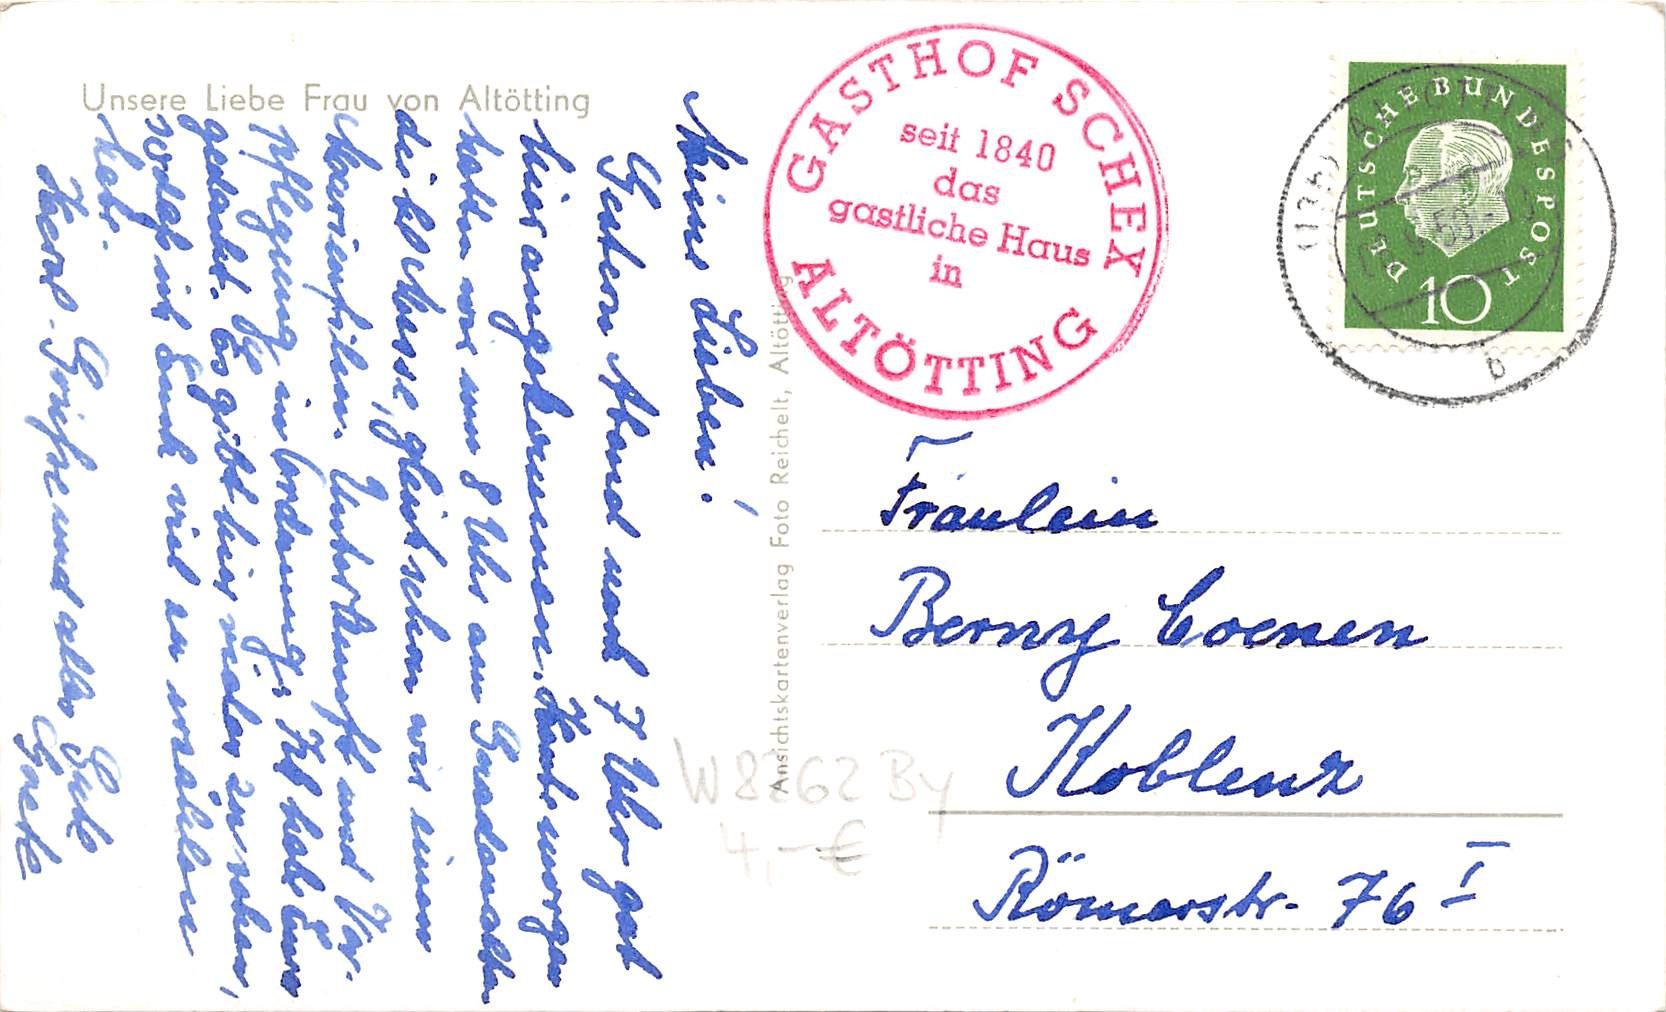 Unsere Liebe Frau von Altötting
Meine Lieben!
Gestern Abend nach 7 Uhr gut
hier angekommen. Heute morgen
hatten wir um 8 Uhr am Gnadenaltar
die hl. Messe, gleich sehen wir einen
Marienfilm. Unterkunft und Ver-
pflegung in Ordnung. Ich habe Eurer
gedacht. Es gibt hier vieles zu sehen,
sodaß ich Euch viel zu erzählen
habe.
Herzl. Grüße und alles Gute
Grete
Ansichtskartenverlag Foto Reichelt, Altötting
GASTHOF SCHEX
seit 1840
das
gastliche Haus
in
ALTÖTTING
DEUTSCHE BUNDESPOST
10
(13b)
59
b
Fräulein
Berny Coenen
Koblenz
Römerstr. 76 I
W8262 By
4,-€